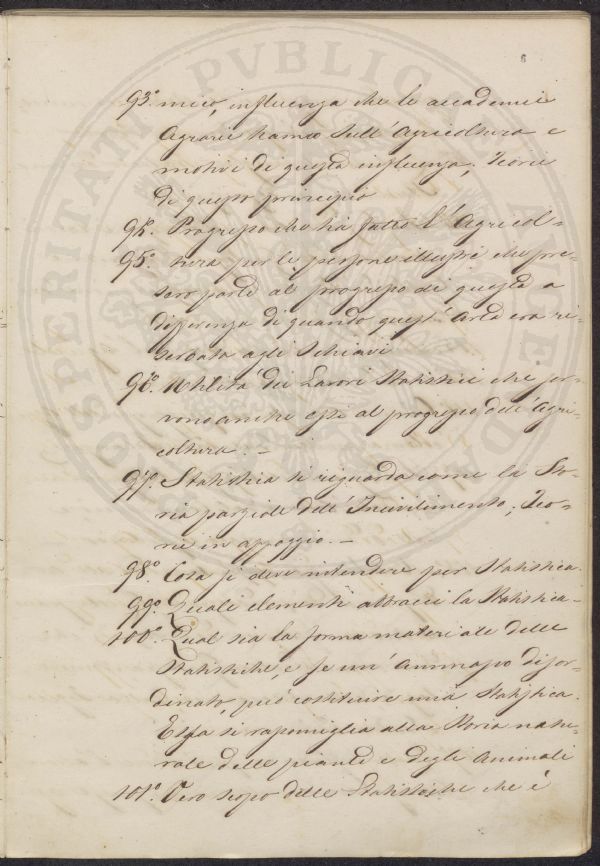 PROSPERITATI PVBLICAE AVGENDAE
6
93.° mico, influenza che le accademie
Agrarie hanno sull' Agricoltura e
motivi di questa influenza, Teorie
di questo principio
94. Progresso che ha fatto l' Agricol-
95.° tura per le persone illustri che pre-
sero parte al progresso di questa a
differenza di quando quest' Arte era ri-
serbata agli Schiavi
96.° Utilità dei Lavori Statistici che ser-
vono anche essi al progresso dell' Agri-
coltura. -
97.° Statistica si riguarda come la Sto-
ria parziale dell' Incivilimento; Teo-
rie in appoggio. -
98.° Cosa si deve intendere per Statistica.
99.° Quali elementi abbracci la Statistica -
100.° Qual sia la forma materiale delle
Statistiche, e se un' ammasso disor-
dinato, può costituire una Statistica.
Essa si rapomiglia alla Storia natu-
rale delle piante e degli Animali
101.° Vero scopo delle Statistiche che è